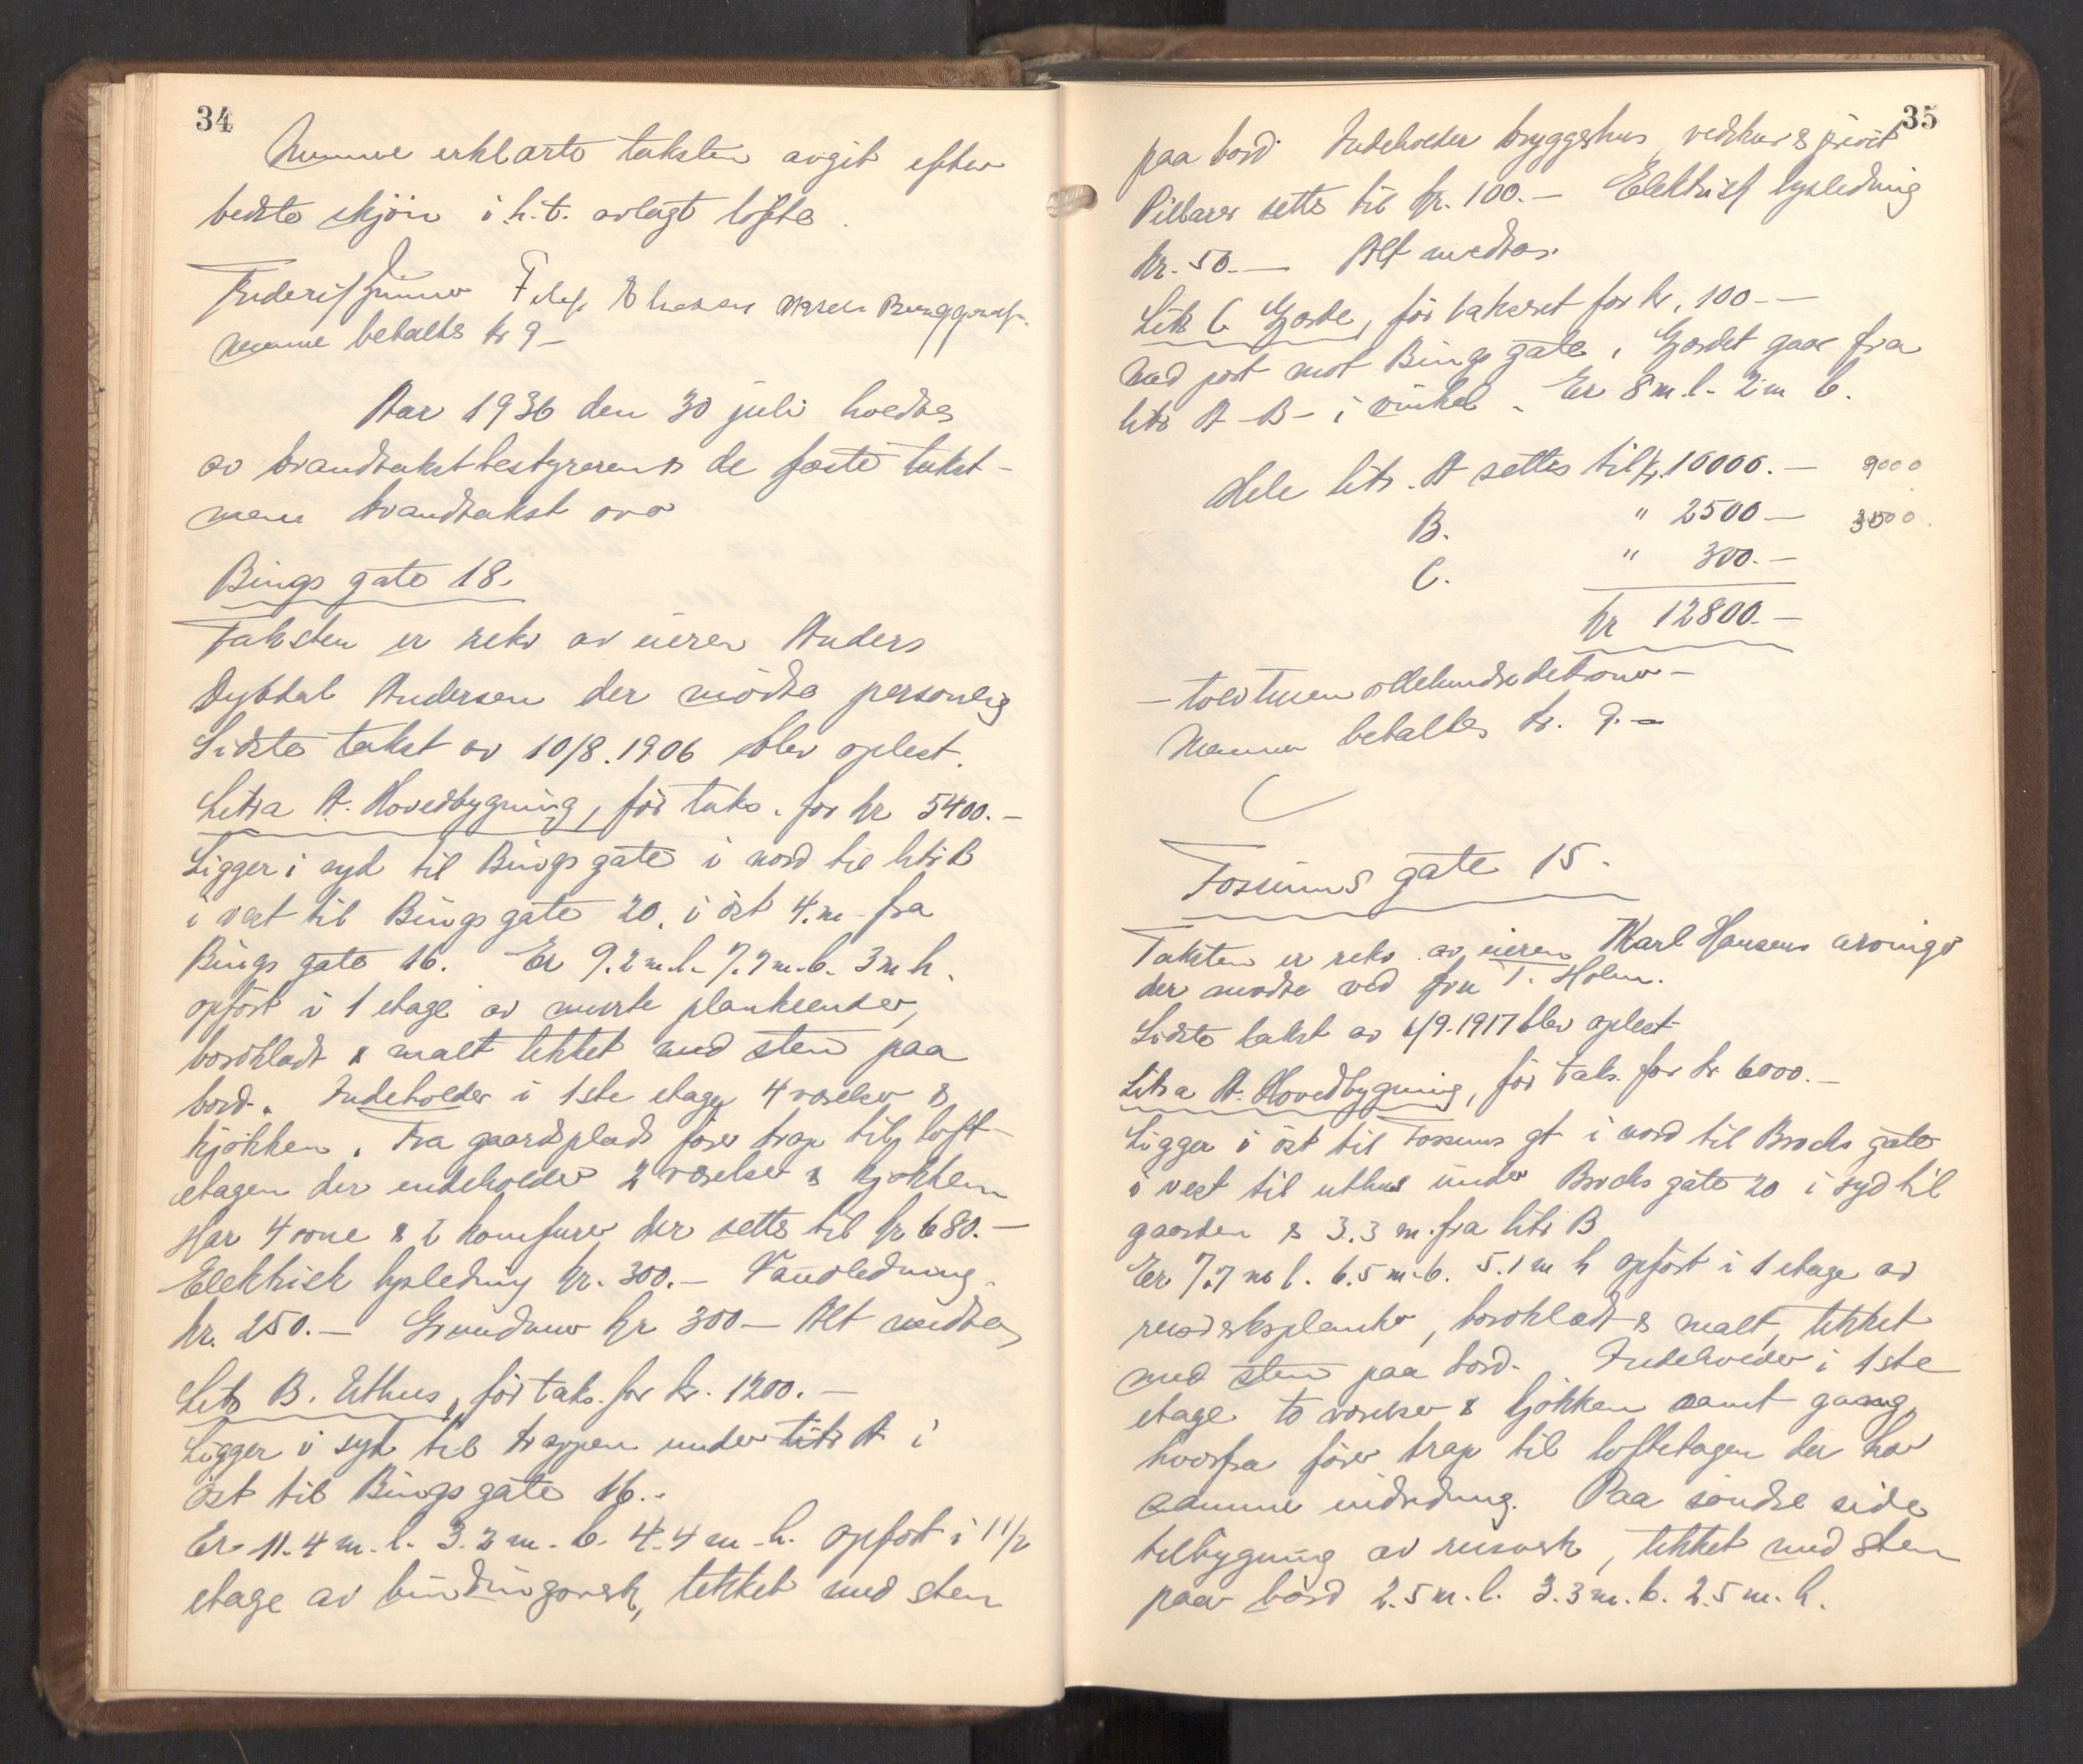 34
erklærte taksten avgit efter
bedste skjön i h.t. avlagt löfte.
betaltes kr 9 -
Aar 1936 den 30 juli holdtes
av brandtakstbestyreren & de faste takst-
mænn brandtakst over
Bings gate 18.
Taksten er rekv av eieren Anders
Dybdal Andersen der mödte personlig
Sidste takst av 10/8.1906 blev oplest.
Litra A. Hovedbygning, för taks. for kr 5400.-
Ligger i syd til Bings gate i nord til litr B
i vest til Bings gate 20, i öst 4. m fra
Bings gate 16. Er 9.2 m.l. 7.7 m.b. 3 m h.
opfört i 1 etage av murte plankeender,
bordklædt & malt tekket med sten paa
bord. Indeholder i 1ste etage 4 værelser &
kjökken. Fra gaardsplads förer trap til loft-
etagen der indeholder 2 værelser & kjökken
Har 4 ovne & 2 komfurer der settes til kr 680.-
Elektrisk lysledning kr. 300.- Vandledning
kr. 250.- Grundmur kr 300 - Alt medtas
Litr B. Uthus, för taks. for kr. 1200.-
Ligger i syd til trappen under litr A i
öst til Bings gate 16.-
Er 11.4 m.l. 3.2 m.b. 4.4 m.h. opfört i 1 1/2
etage av bindingsverk, tekket med sten
35
paa bord. Indeholder bryggehus, vedskur & privet
Pillarer settes til kr. 100.- Elektrisk lysledning
kr. 50.- Alt medtas.
Litr C Gjerde, för takseret for kr. 100.-
Med port mot Bings gate. Gjerdet gaar fra
litr A - B - i vinkel. Er 8 m.l. 2 m b.
Hele litr. A settes til kr. 10000.- 9000
B. " 2500 - 3500.
C. " 300.-
kr 12800.-
- tolvtusen ottehundrede kroner -
betaltes kr. 9.-
Fossums gate 15.
Taksten er rekv. av eieren Karl Hansens arvinger
der mödte ved fru T. Holm.
Sidste takst av 4/9.1917 blev oplest
Litra A. Hovedbygning, för taks. for kr 6000.-
Ligger i öst til Fossums gt i nord til Brochs gate
i vest til uthus under Brochs gate 20 i syd til
gaarden & 3.3 m. fra litr B
Er 7.7 m l. 6.5 m.b. 5.1 m h opfört i 1 etage av
reisverksplanke, bordklædt & malt, tekket
med sten paa bord. Indeholder i 1ste
etage to værelser & kjökken samt gang,
hvorfra förer trap til loftetagen der har
samme indredning. Paa söndre side
tilbygning av reisverk, tekket med sten
paa bord 2.5 m.l. 3.3 m.b. 2.5 m.h.